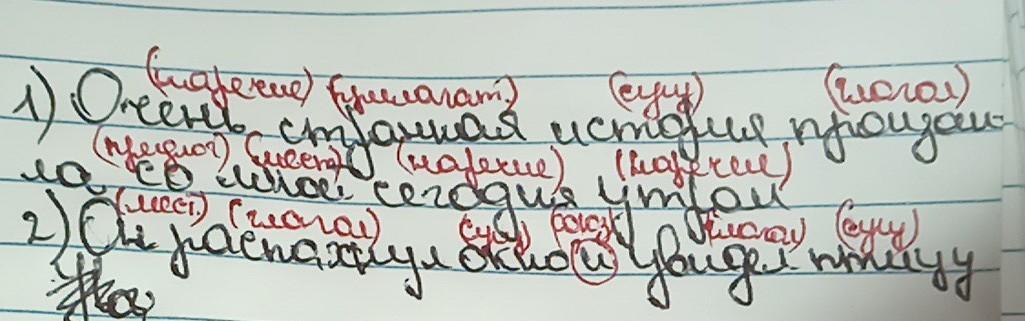 (наречие) (прилагат.) (сущ) (глагол)
1) Очень странная история произош-
(предлог) (мест) (наречие) (наречие)
ла со мной сегодня утром
(мест) (глагол) (сущ) (союз) (глагол) (сущ)
2) Он распахнул окно и увидел птицу